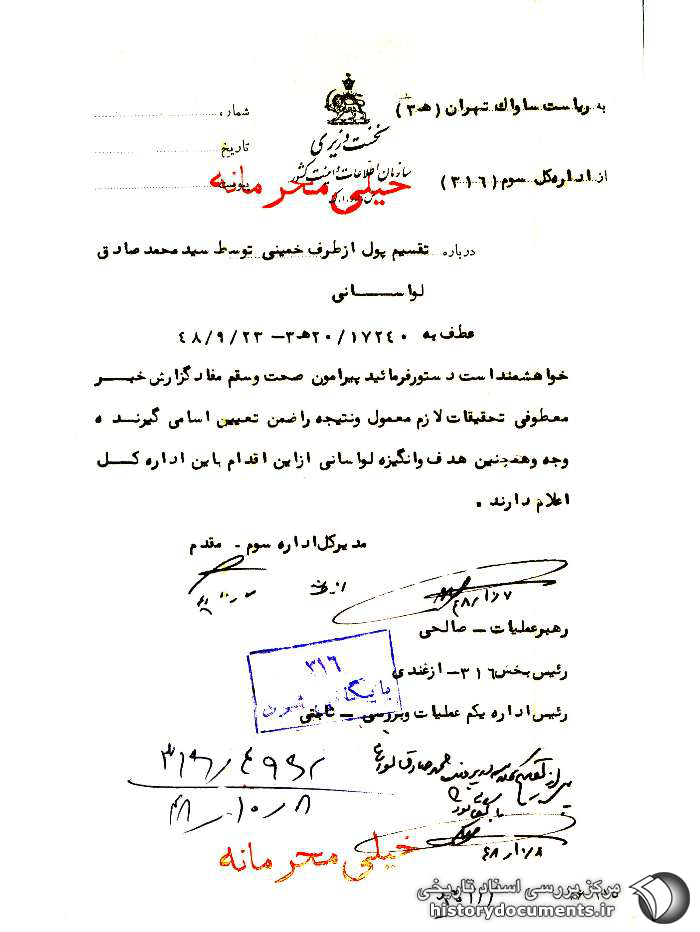 به ریاست ساواك تهران (هـ۳)
شماره
نخست وزیری
تاریخ
سازمان اطلاعات و امنیت کشور
از اداره‌کل سوم (۳۱۶)
پیوست
خیلی محرمانه
درباره تقسیم پول ازطرف خمینی توسط سید محمد صادق
لواسانی
عطف به ۲۰/۱۷۲٤۰هـ۳ – ٤۸/۹/۲۳
خواهشمند است دستورفرمائید پیرامون صحت وسقم مفاد گزارش خبر
معطوفی تحقیقات لازم معمول ونتیجه را ضمن تعیین اسامی گیرنده
وجه وهمچنین هدف وانگیزه لواسانی ازاین اقدام باین اداره کل
اعلام دارند.
مدیرکل‌اداره سوم - مقدم
رهبرعملیات – صالحی
رئیس بخش ۳۱٦ – ازغندی
۳۱۶
بایگانی شود
رئیس اداره یکم عملیات وبررسی – ثابتی
۳۱۶/۴۹۶۲
۴۸/۱۰/۸
خیلی محرمانه
مرکز بررسی اسناد تاریخی
historydocuments.ir